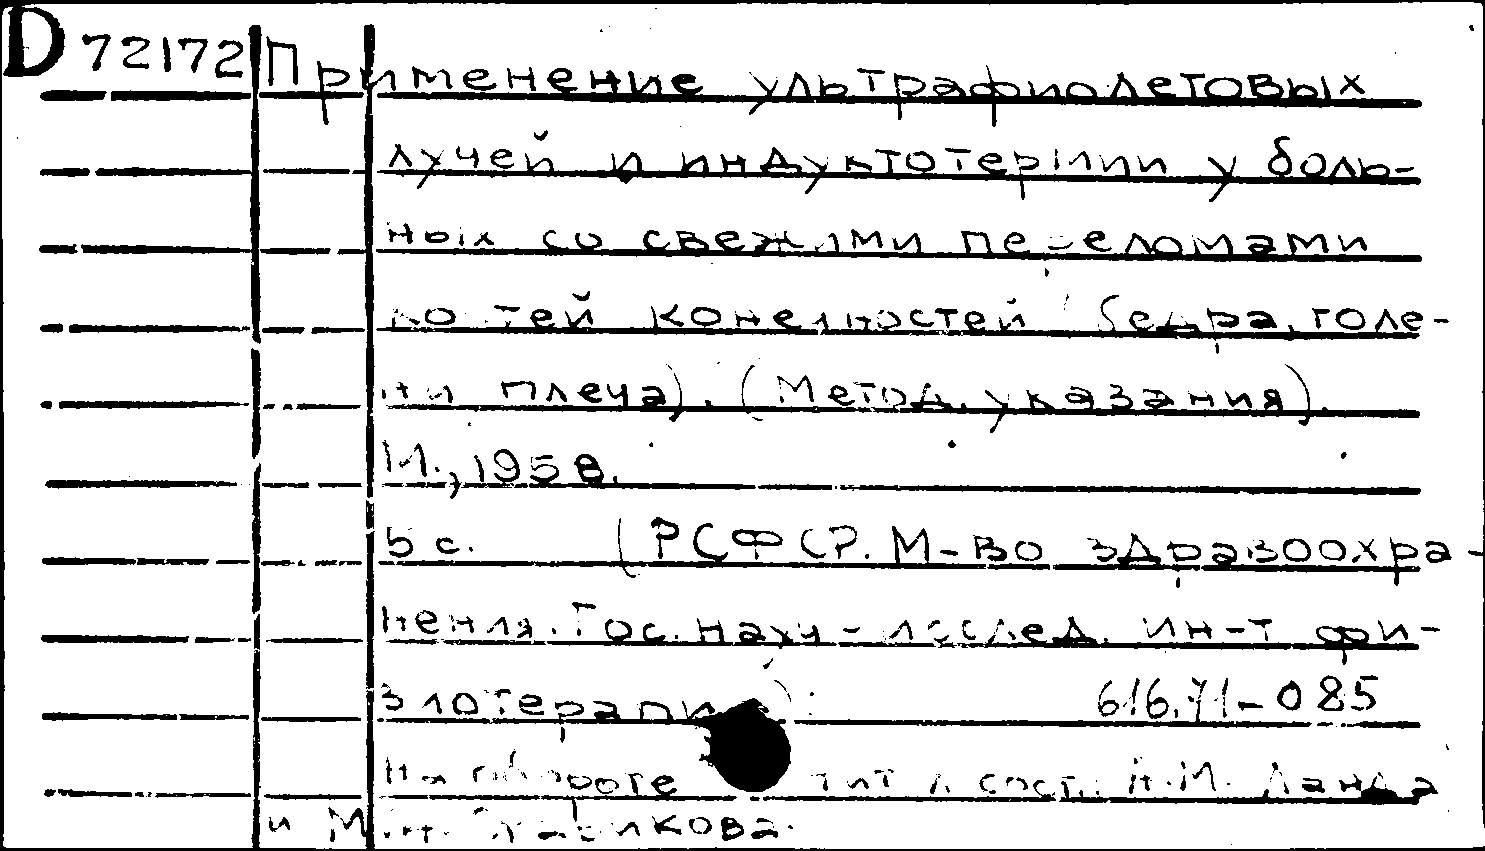 D 72172 Применение ультрафиолетовых
лучей и индуктотерапии у боль-
ных со свежими переломами
костей конечностей (бедра, голе-
ни плеча). (Метод. указания).
М., 1958.
5 с. (РСФСР. М-во здравоохра-
нения. Гос. науч-исслед. ин-т фи-
зиотерапии).
616.71-085
На обороте тит. л. сост.: Н.М. Ланда
и